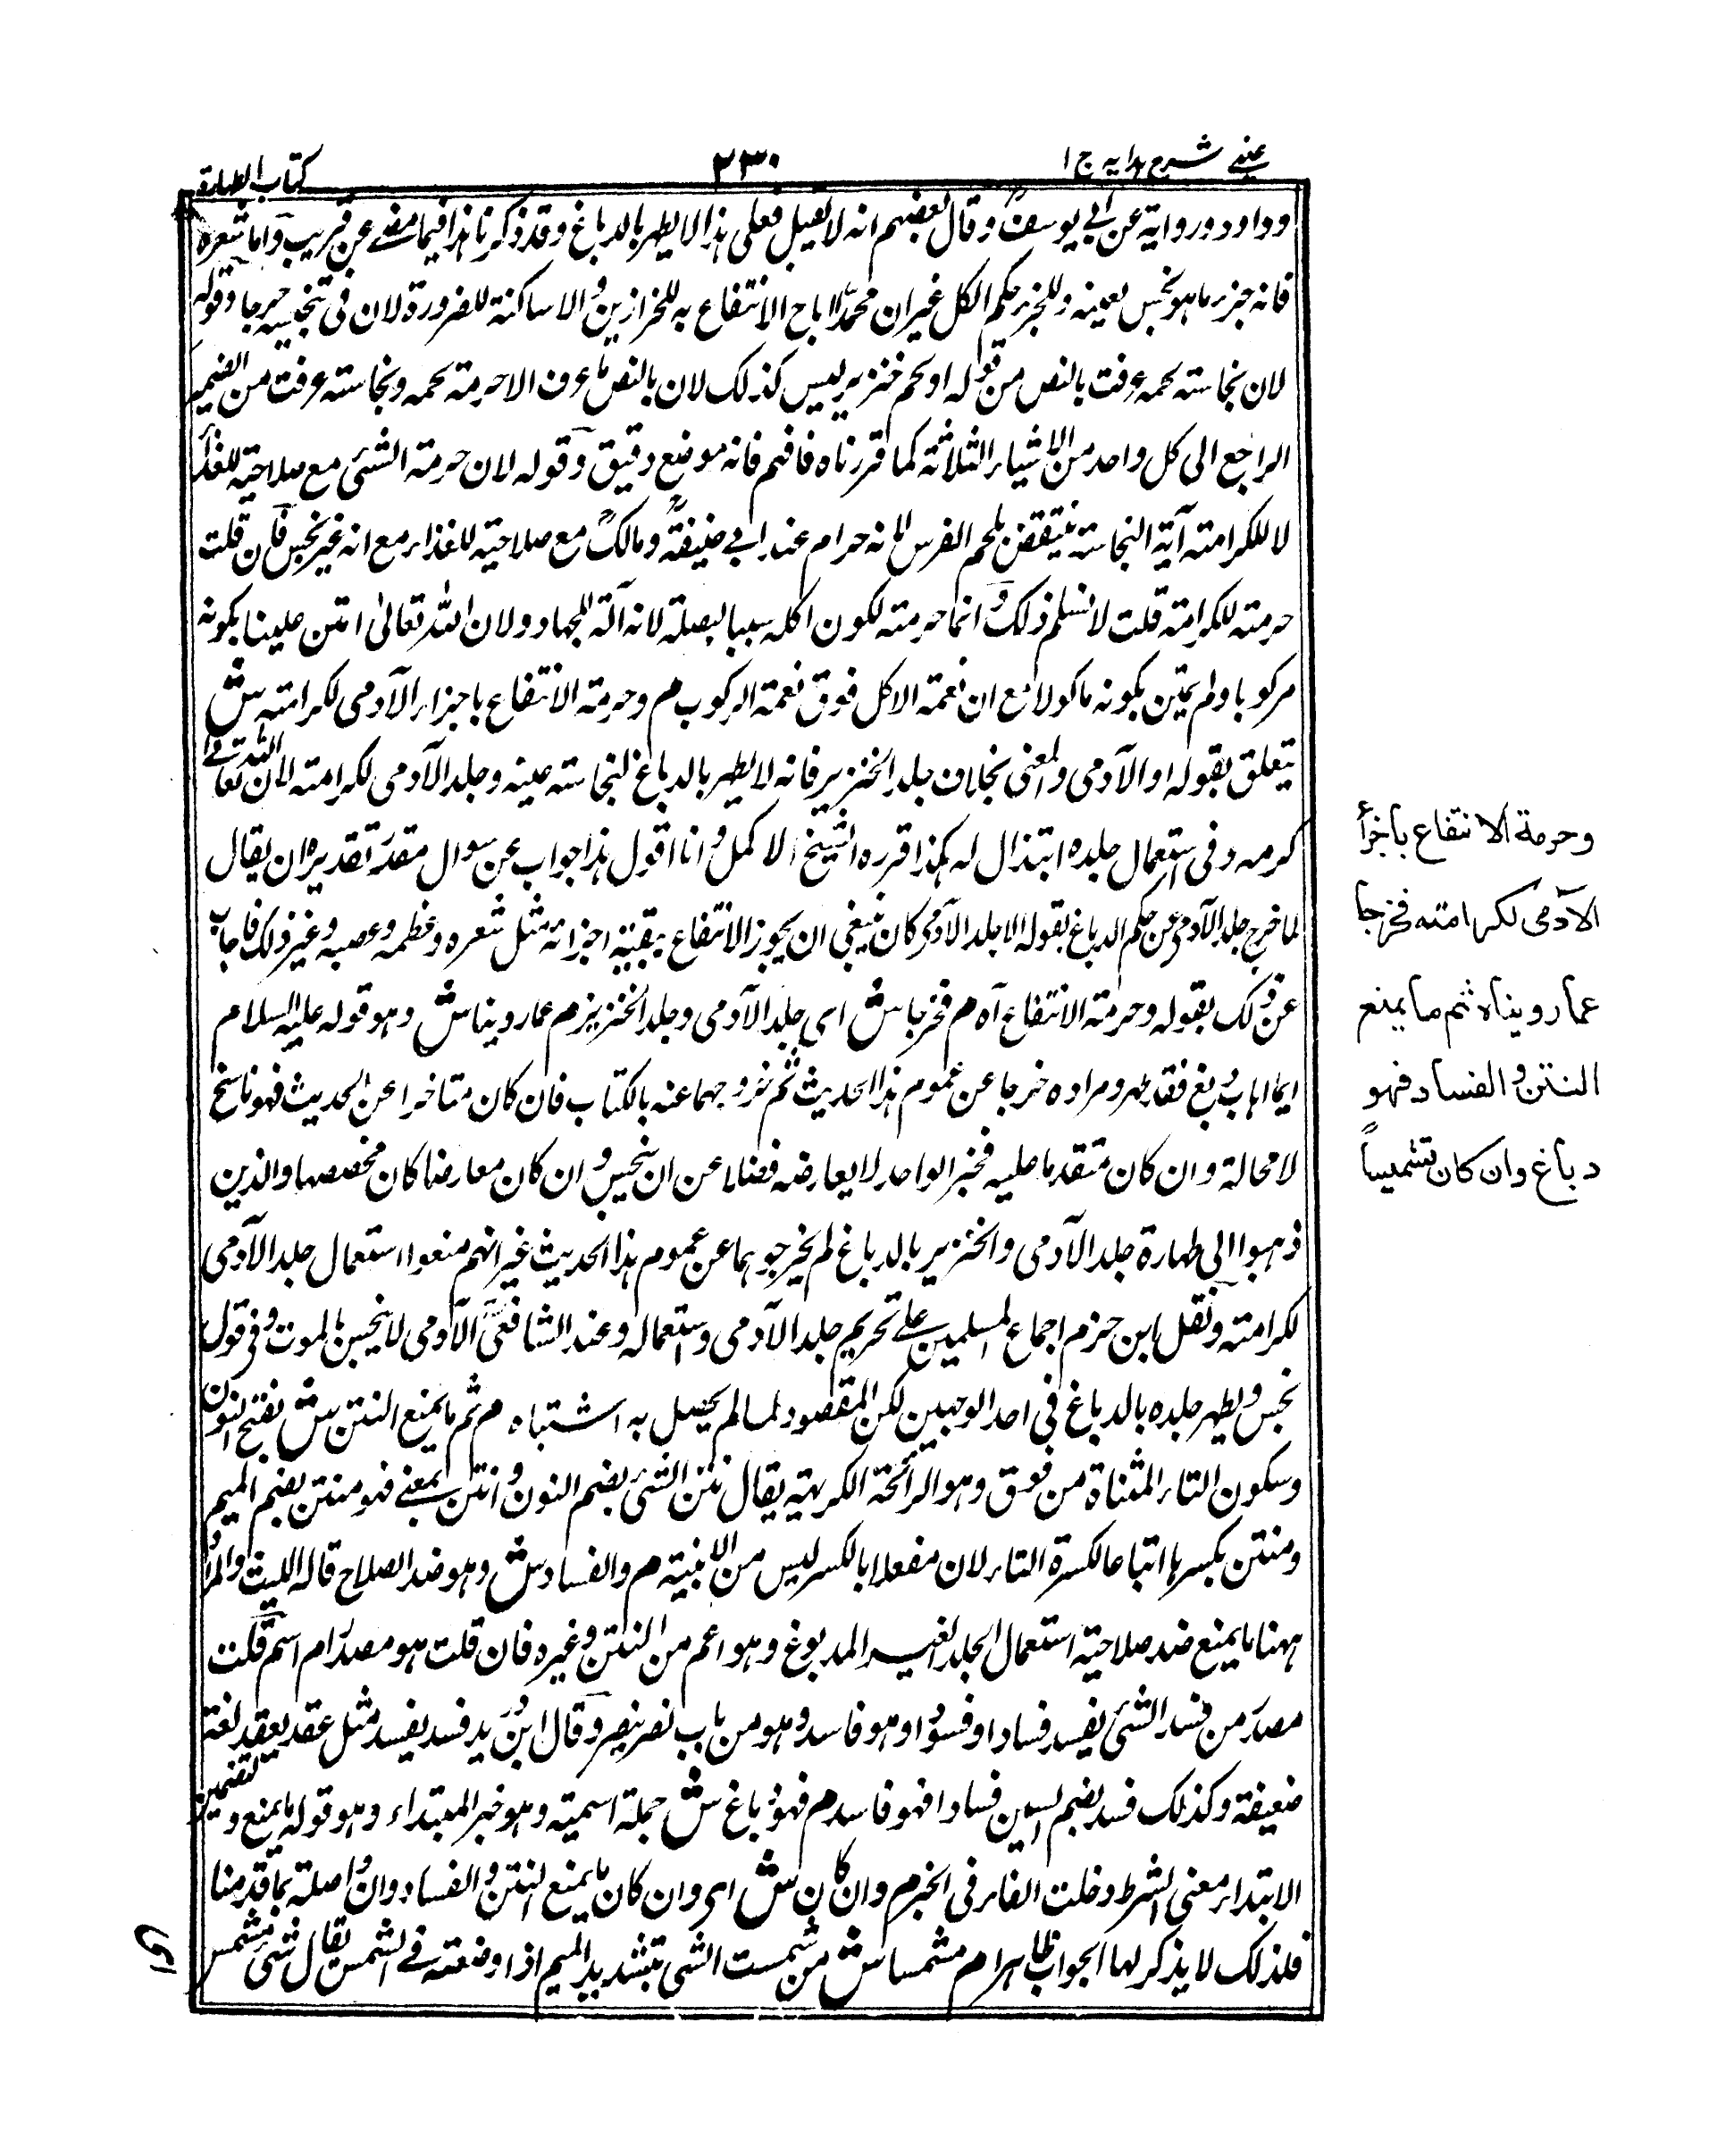 عینے شرح ہدایہ ج ١
٢٣٠
كتاب الطہارة
وداود ورواية عن ابي يوسف وقال بعضهم انه لا يقبل فعلى هذا لا يطهر بالدباغ وقد ذكرنا هذا فيما مضى عن قريب واما شعره
فانه جزء ما هو نجس بعينه وللجزء حكم الكل غير ان محمدا اباح الانتفاع به للخرازين والاساكنة للضرورة لان في تنجيسه حرجا وقوله
لان نجاسته لحمه عرفت بالنص من قوله او لحم خنزير ليس كذلك لان بالنص ما عرف الا حرمة لحمه ونجاسته عرفت من الضمير
الراجع الى كل واحد من الاشياء الثلاثة كما قررناه فافهم فانه موضع دقيق وقوله لان حرمة الشئ مع صلاحيته للغذاء
لا للكرامته آية النجاسة ينتقض بلحم الفرس لانه حرام عند ابي حنيفة ومالك مع صلاحيته للغذاء مع انه غير نجس فان قلت
حرمته للكرامته قلت لا نسلم ذلك وانما حرمته لكون اكله سببا لـ لانه آلة للجهاد ولان الله تعالى امتن علينا بكونه
مركوبا ولم يمتن بكونه ماكولا مع ان نعمة الاكل فوق نعمة الركوب م وحرمة الانتفاع باجزاء الآدمي لكرامته ش
يتعلق بقوله او الآدمي والمعنى بخلاف جلد الخنزير فانه لا يطهر بالدباغ لنجاسته عينه وجلد الآدمي لكرامته لان الله تعالى
كرمه وفي استعمال جلده ابتذال له هكذا قرره الشيخ الاكمل وانا اقول هذا جواب عن سوال مقدر تقديره ان يقال
لما خرج جلد الآدمي عن حكم الدباغ بقوله الا جلد الآدمي كان ينبغي ان يجوز الانتفاع ببقية اجزائه مثل شعره وعظمه وعصبه وغير ذلك فاجاب
عن ذلك بقوله وحرمة الانتفاع آه م فخرجا ش اي جلد الآدمي وجلد الخنزير م عما روينا ش وهو قوله عليه السلام
ايما اهاب دبغ فقد طهر ومراده خرجا عن عموم هذا الحديث ثم خروجهما عنه بالكتاب فان كان متاخرا عن الحديث فهو ناسخ
لا محالة وان كان متقدما عليه فخبر الواحد لا يعارضه فضلا عن ان ينجس وان كان معارضا كان مخصصها والذين
ذهبوا الى طهارة جلد الآدمي والخنزير بالدباغ لم يخرجوهما عن عموم هذا الحديث غير انهم منعوا استعمال جلد الآدمي
لكرامته ونقل ابن حزم اجماع المسلمين على تحريم جلد الآدمي واستعماله وعند الشافعي الآدمي لا ينجس بالموت وفي قول
نجس ويطهر جلده بالدباغ في احد الوجهين لكن المقصود لما لم يحصل به اشتباه م ثم ما يمنع النتن ش بفتح النون
وسكون التاء المثناة من فوق وهو الرائحة الكريهة يقال نتن الشئ بضم النون وانتن بمعنى فهو منتن بضم الميم
ومنتن بكسرها اتباعا لكسرة التاء لان مفعلا بالكسر ليس من الابنية م والفساد ش وهو ضد الصلاح قاله الليث والمراد
ههنا ما يمنع ضد صلاحية استعمال الجلد لغير المدبوغ وهو اعم من النتن وغيره فان قلت هو مصدر ام اسم قلت
مصدر من فسد الشئ يفسد فسادا وفسودا وهو فاسد وهو من باب نصر ينصر وقال ابن دريد فسد يفسد مثل عقد يعقد لغة
ضعيفة وكذلك فسد بضم السين فسادا فهو فاسد م فهو دباغ ش جملة اسمية وهو خبر المبتداء وهو قوله ما يمنع ولتضمين
الابتداء معنى الشرط دخلت الفاء في الخبر م وان كان ش اي وان كان ما يمنع النتن والفساد وان واصلة بما قدمنا
فلذلك لا يذكر لها الجواب ظاهرا م مشمسا ش من شمست الشئ بتشديد الميم اذا وضعته في الشمس يقال شئ مشمس
اى
وحرمة الانتفاع باجزأ
الآدمى لكرامته فخرجا
عما رويناه ثم ما يمنع
النتن والفساد فهو
دباغ وان كان تشميساً